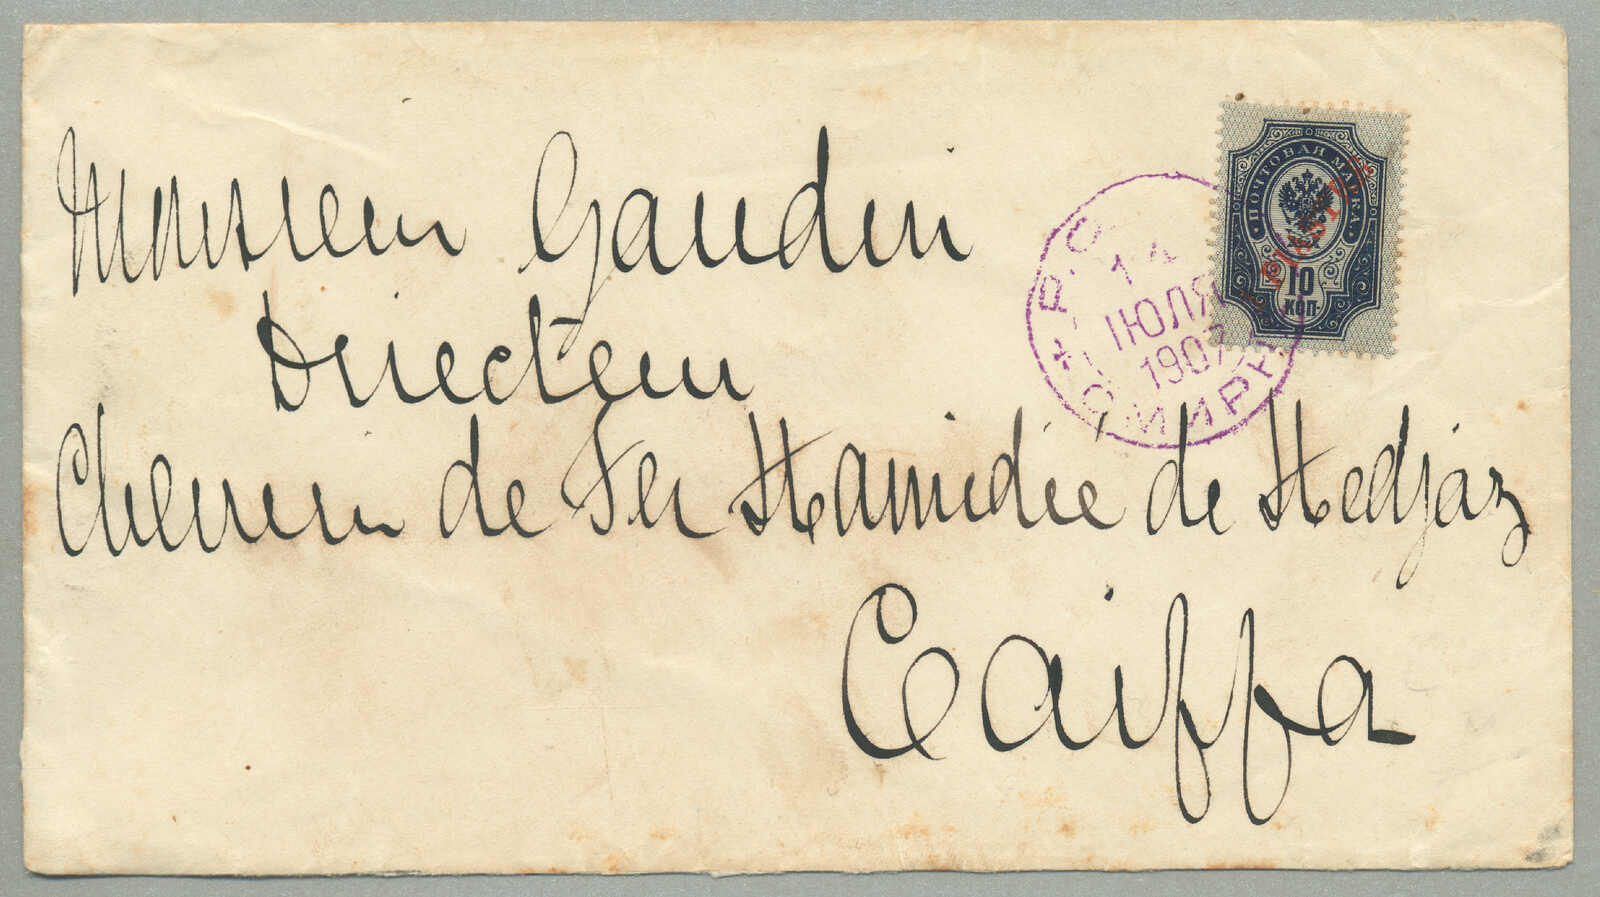 Monsieur Gaudin
Directeur
Chemin de Fer Hamidié de Hedjaz
Caiffa
ПОЧТОВАЯ МАРКА.
1 PIASTRE 1
10
КОП.
Р.О
14
ІЮЛЯ
1907
СМИРН